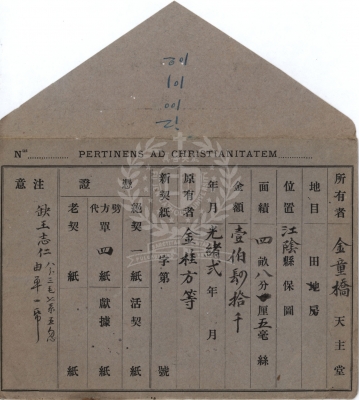 Nº PERTINENS AD CHRISTIANITATEM
所有者 金童橋 天主堂
地目 田地房
位置 江陰縣 保 圖
面積 四畝八分 厘五毫 絲
金額 壹伯肆拾千
年月 光緒弍年 月
原有者 金桂方等
新契紙 字第 號
憑證
絕契 一紙 活契 紙
代方單 四紙 獻據 紙
老契 紙
注意 缺王志仁
由單一